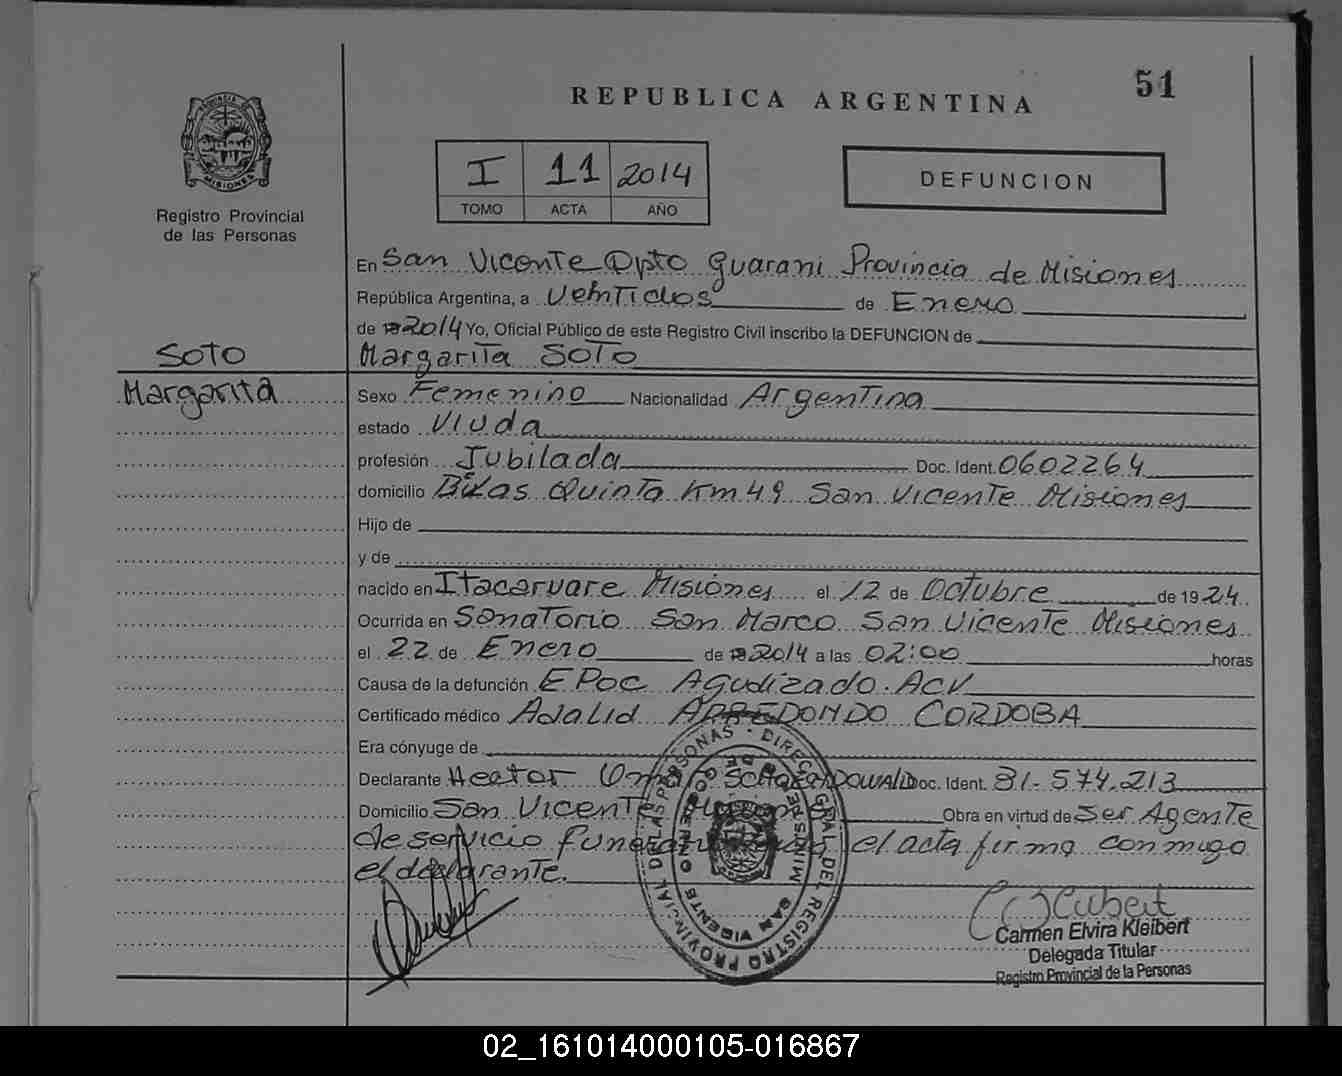 51
REPUBLICA ARGENTINA
PROVINCIA DE
MISIONES
Registro Provincial
de las Personas
I 11 2014
TOMO ACTA AÑO
DEFUNCION
En San Vicente Dpto Guarani Provincia de Misiones
República Argentina, a Veintidos de Enero
de 2014 Yo, Oficial Público de este Registro Civil inscribo la DEFUNCION de
SOTO
Margarita SOTO
Margarita
Sexo Femenino Nacionalidad Argentina
estado Viuda
profesión Jubilada Doc. Ident. 0602264
domicilio Quinta Km 49 San Vicente Misiones
Hijo de
y de
nacido en Itacaruare Misiones el 12 de Octubre de 1924
Ocurrida en Sanatorio San Marco San Vicente Misiones
el 22 de Enero de 2014 a las 02:00 horas
Causa de la defunción EPOC Agudizado. ACV
Certificado médico Adalid ARREDONDO CORDOBA
Era cónyuge de
Declarante Hector Doc. Ident. 31.574.213
Domicilio San Vicente Obra en virtud de Ser Agente
de servicio el acta firma conmigo
el declarante.
DIRECC. GRAL. DEL REGISTRO PROVINCIAL DE LAS PERSONAS
MINISTERIO DE GOBIERNO
SAN VICENTE
Carmen Elvira Kleibert
Delegada Titular
Registro Provincial de la Personas
02_161014000105-016867